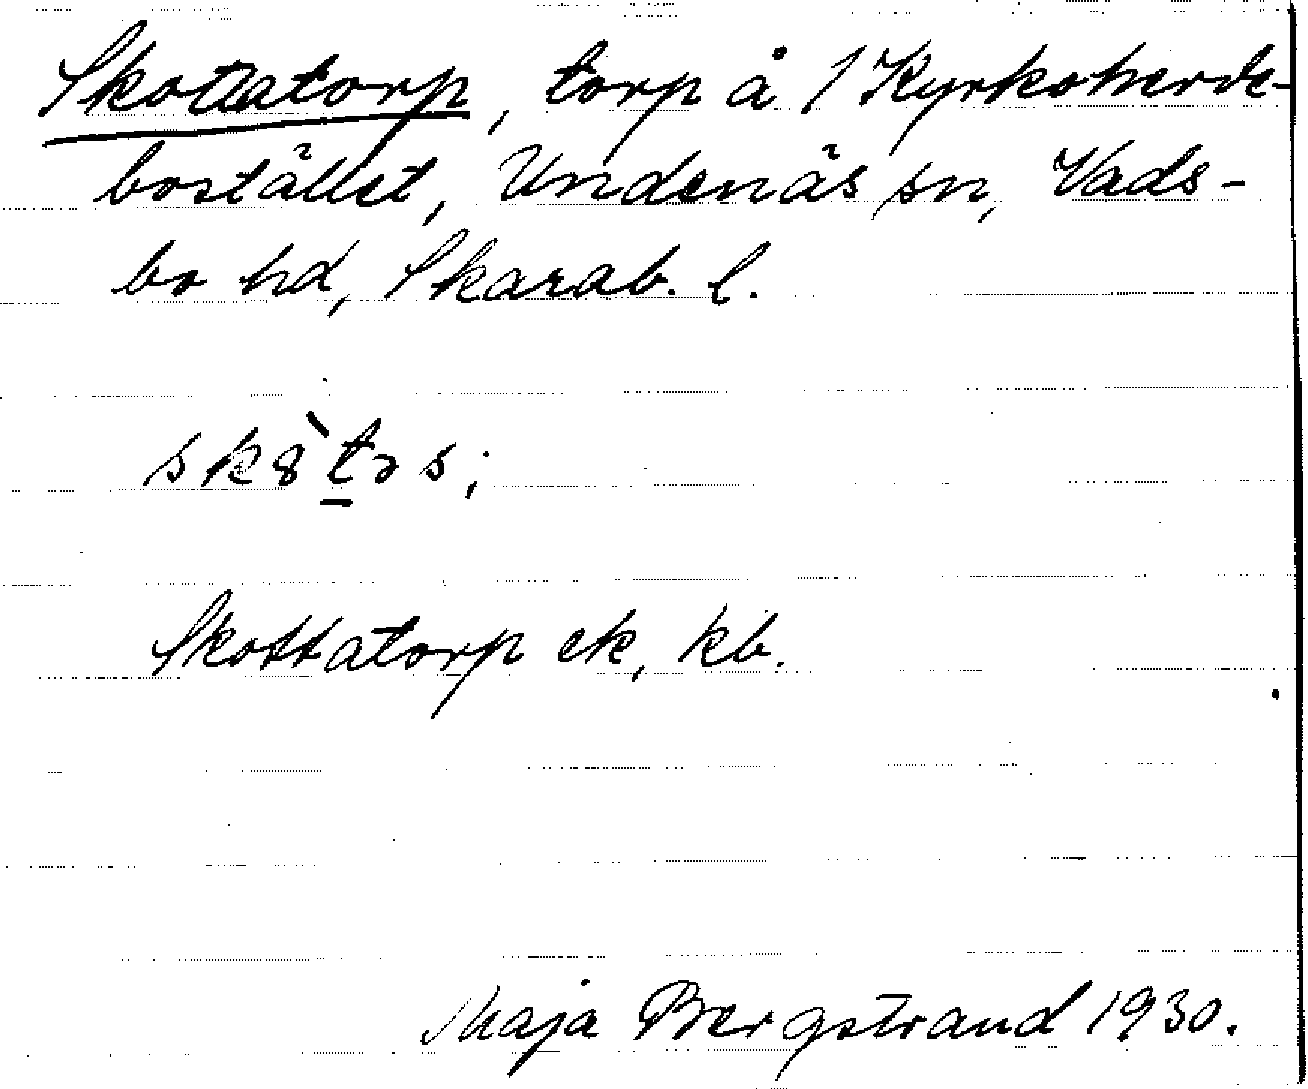 Skottatorp, torp å 1 Kyrkoherde-
bostället, Undenäs sn, Vads-
bo hd, Skarab. l.
sk8̀t̲ɔs;
Skottatorp ek, kb.
Maja Bergstrand 1930.